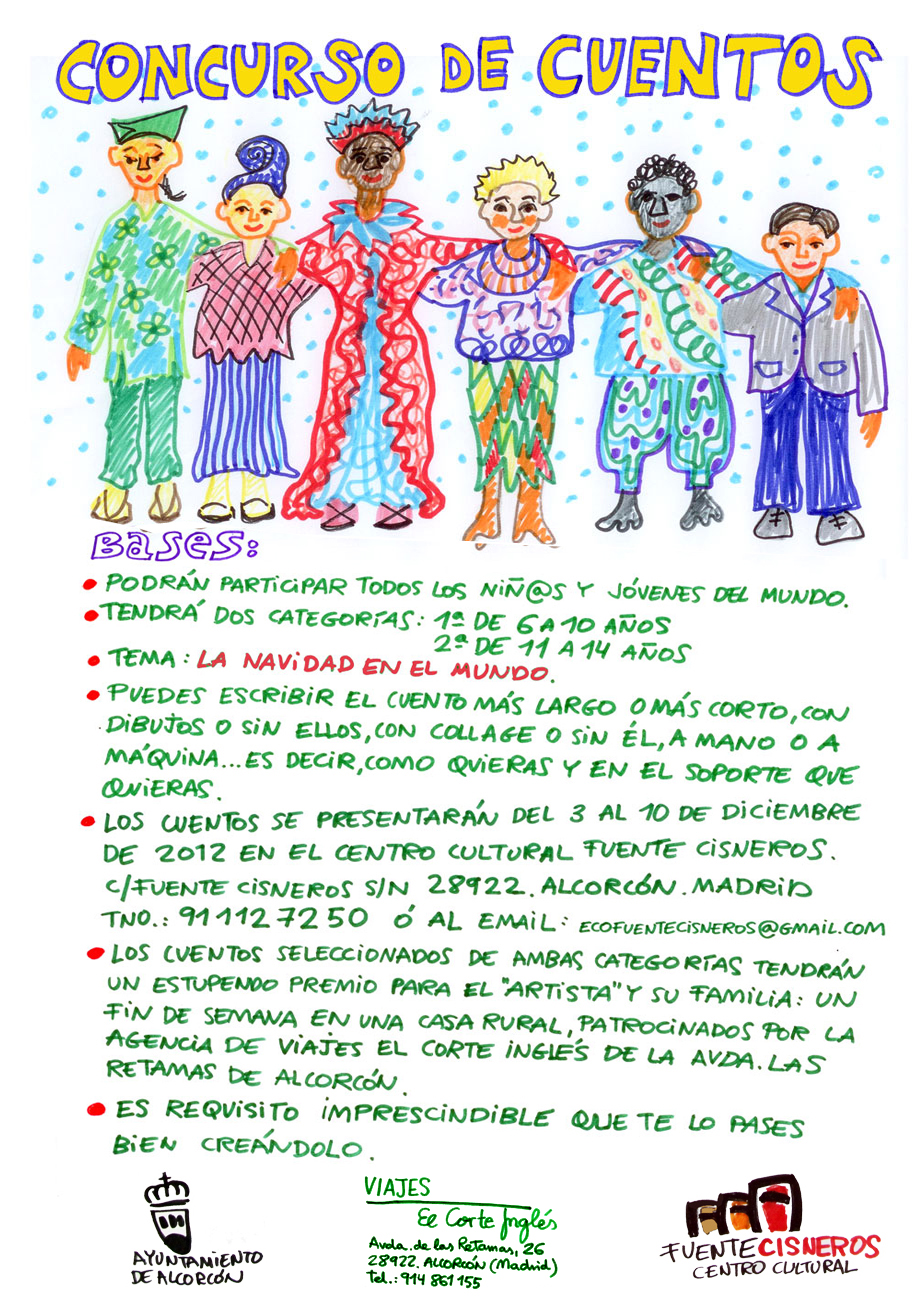 CONCURSO DE CUENTOS
BASES:
• PODRÁN PARTICIPAR TODOS LOS NIÑ@S Y JÓVENES DEL MUNDO.
• TENDRÁ DOS CATEGORÍAS: 1ª DE 6 A 10 AÑOS
2ª DE 11 A 14 AÑOS
• TEMA: LA NAVIDAD EN EL MUNDO.
• PUEDES ESCRIBIR EL CUENTO MÁS LARGO O MÁS CORTO, CON
DIBUJOS O SIN ELLOS, CON COLLAGE O SIN ÉL, A MANO O A
MÁQUINA... ES DECIR, COMO QUIERAS Y EN EL SOPORTE QUE
QUIERAS.
• LOS CUENTOS SE PRESENTARÁN DEL 3 AL 10 DE DICIEMBRE
DE 2012 EN EL CENTRO CULTURAL FUENTE CISNEROS.
C/FUENTE CISNEROS S/N 28922. ALCORCÓN. MADRID
TNO.: 911127250 Ó AL EMAIL: ECOFUENTECISNEROS@GMAIL.COM
• LOS CUENTOS SELECCIONADOS DE AMBAS CATEGORÍAS TENDRÁN
UN ESTUPENDO PREMIO PARA EL "ARTISTA" Y SU FAMILIA: UN
FIN DE SEMANA EN UNA CASA RURAL, PATROCINADOS POR LA
AGENCIA DE VIAJES EL CORTE INGLÉS DE LA AVDA. LAS
RETAMAS DE ALCORCÓN.
• ES REQUISITO IMPRESCINDIBLE QUE TE LO PASES
BIEN CREÁNDOLO.
AYUNTAMIENTO
DE ALCORCÓN
VIAJES
El Corte Inglés
Avda. de las Retamas, 26
28922. ALCORCÓN (Madrid)
Tel.: 914 861 155
FUENTECISNEROS
CENTRO CULTURAL